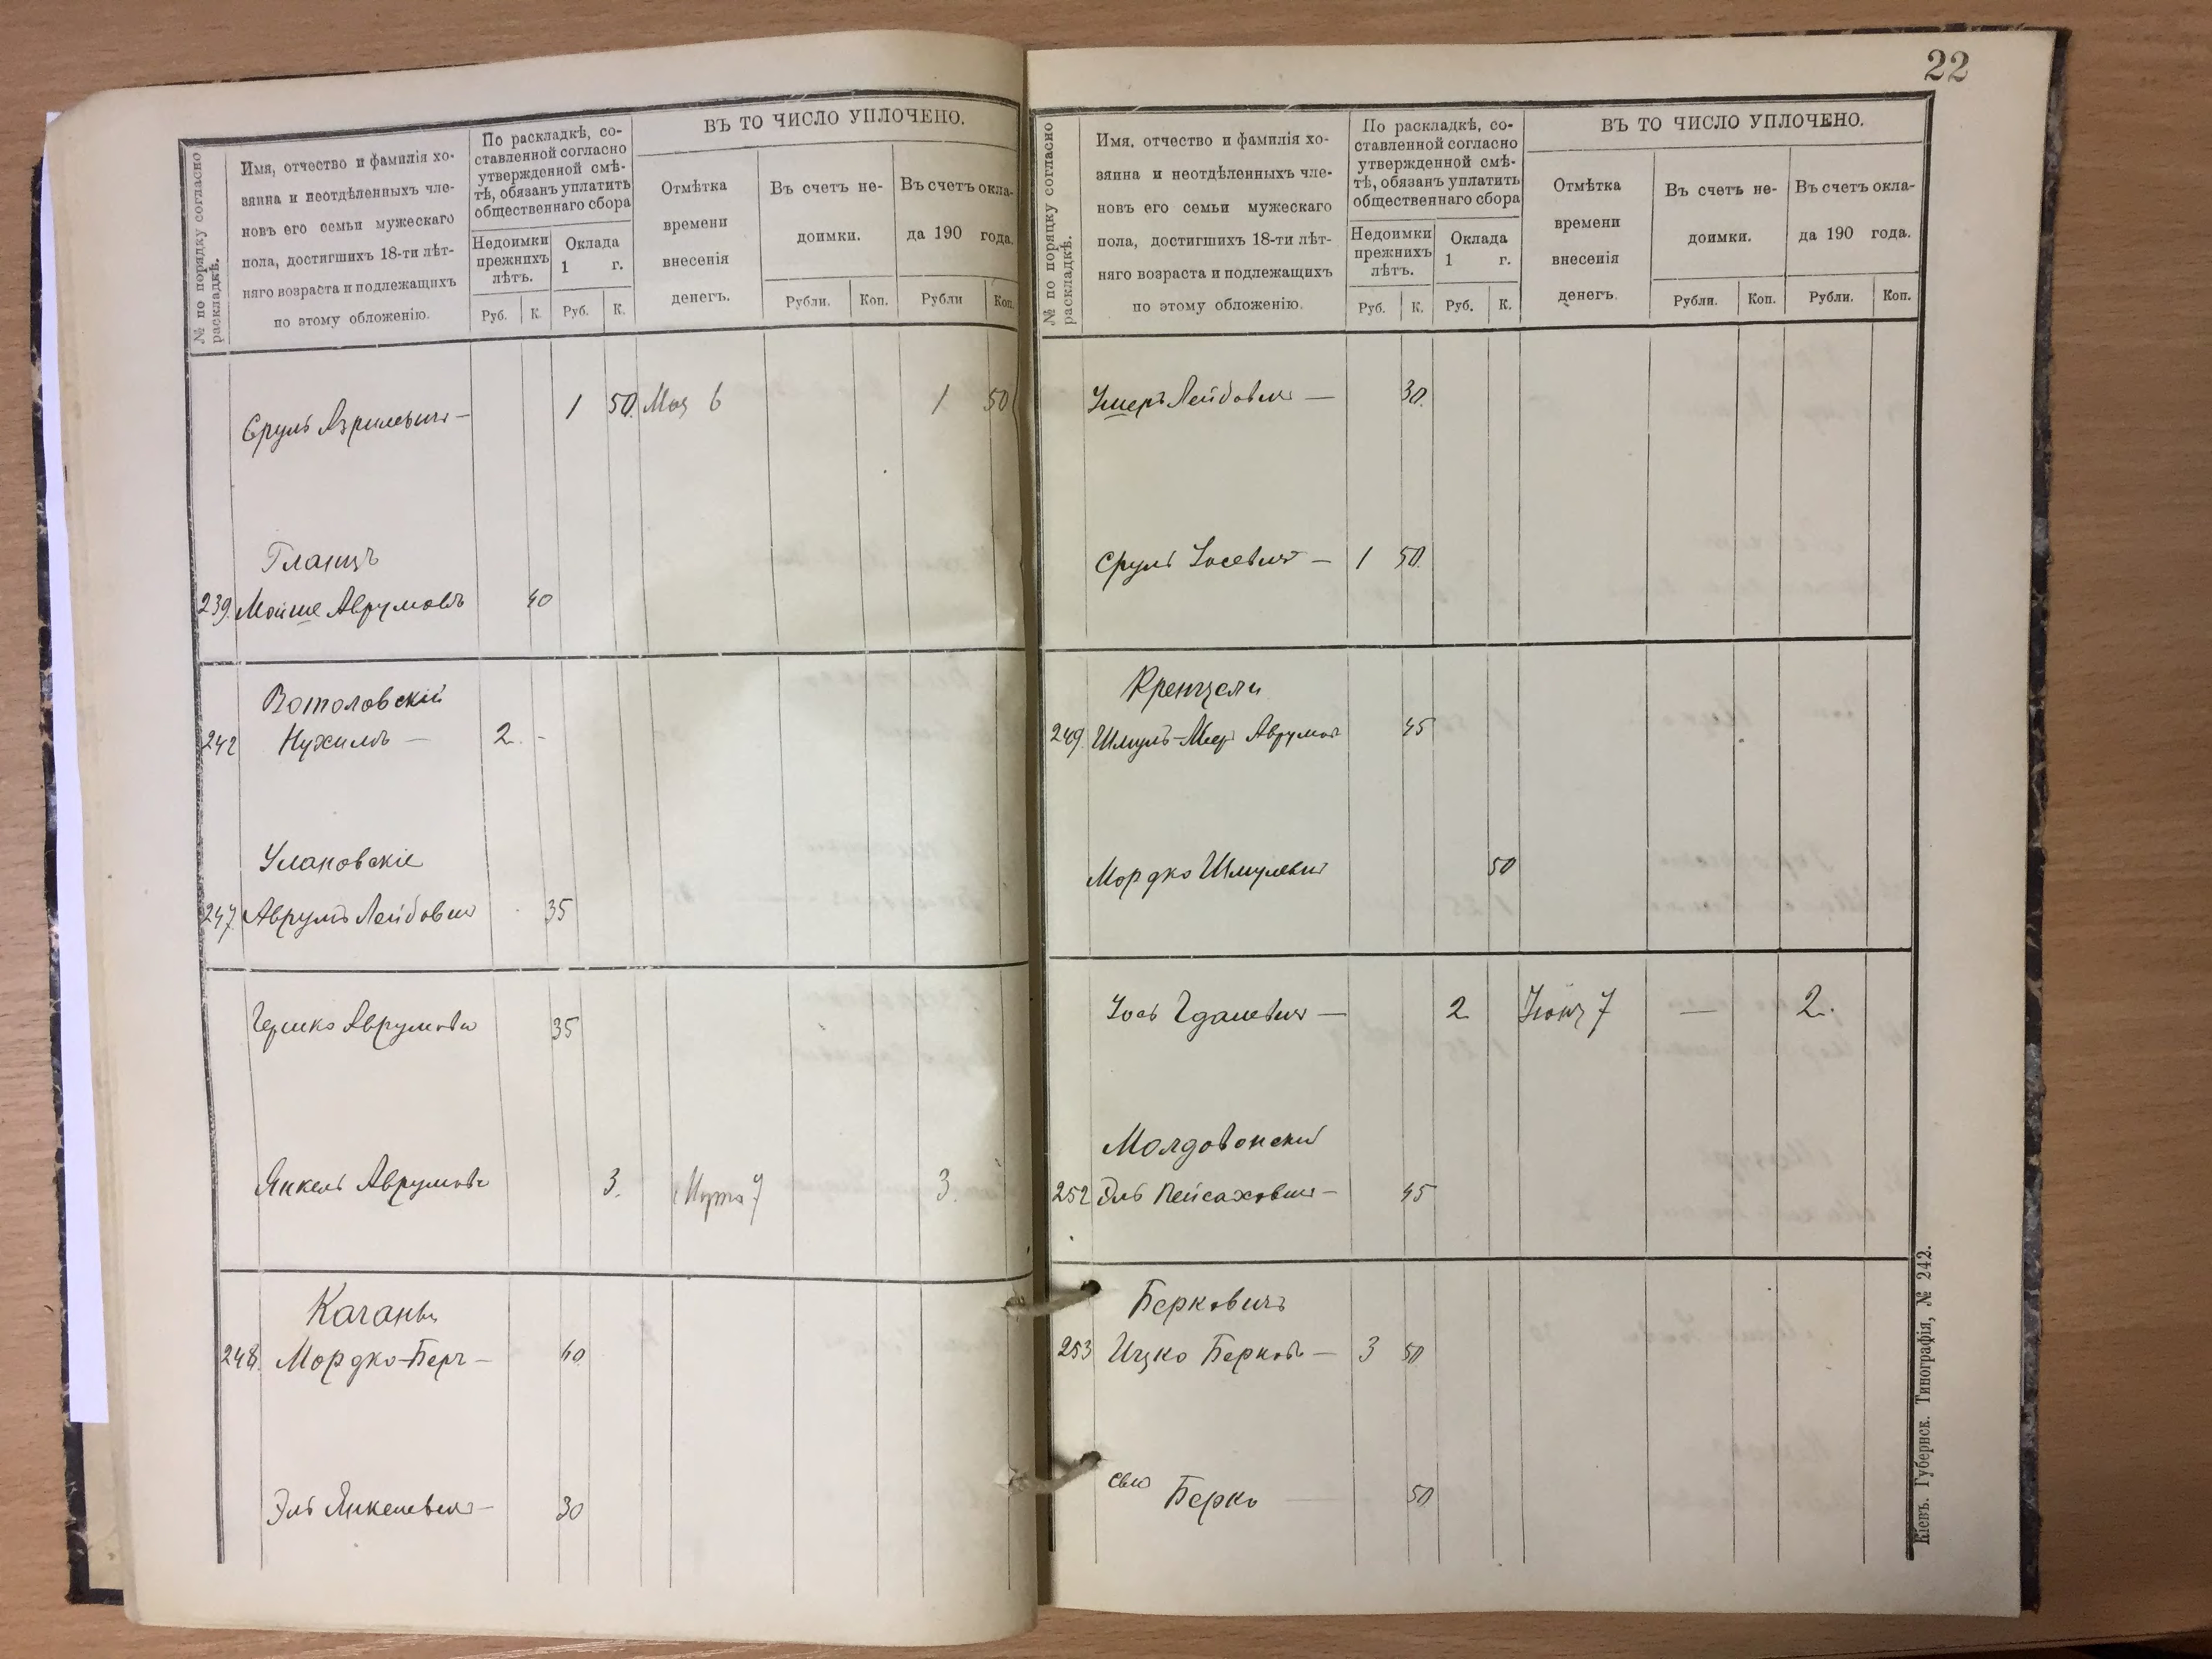 22
№ по порядку согласно раскладкѣ.
Имя, отчество и фамилія хо-
зяина и неотдѣленныхъ чле-
новъ его семьи мужескаго
пола, достигшихъ 18-ти лѣт-
няго возраста и подлежащихъ
по этому обложенію.
По раскладкѣ, со-
ставленной согласно
утвержденной смѣ-
тѣ, обязанъ уплатить
общественнаго сбора
Недоимки
прежнихъ
лѣтъ.
Оклада
1 г.
Руб. К. Руб. К.
ВЪ ТО ЧИСЛО УПЛОЧЕНО.
Отмѣтка
времени
внесенія
денегъ.
Въ счетъ не-
доимки.
Въ счетъ окла-
да 190 года.
Рубли. Коп. Рубли Коп.
Сруль Азрилевичъ — 1 50. Мая 6 1 50
Гланцъ
239. Мойше Аврумовъ 40
Вотоловскій
242 Нухимъ — 2. -
Улановскіе
247. Аврумъ Лейбович 35
Гершко Аврумовъ 35
Янкель Аврумовъ 3. Марта 9 3.
Каганы
248. Мордко-Бергъ — 60
Эль Янкелевич — 30
№ по порядку согласно раскладкѣ.
Имя, отчество и фамилія хо-
зяина и неотдѣленныхъ чле-
новъ его семьи мужескаго
пола, достигшихъ 18-ти лѣт-
няго возраста и подлежащихъ
по этому обложенію.
По раскладкѣ, со-
ставленной согласно
утвержденной смѣ-
тѣ, обязанъ уплатить
общественнаго сбора
Недоимки
прежнихъ
лѣтъ.
Оклада
1 г.
Руб. К. Руб. К.
ВЪ ТО ЧИСЛО УПЛОЧЕНО.
Отмѣтка
времени
внесенія
денегъ.
Въ счетъ не-
доимки.
Въ счетъ окла-
да 190 года.
Рубли. Коп. Рубли. Коп.
Умеръ Лейбович — 30.
Сруль Іосевич — 1 50.
Кренцели
249. Шмуль-Меер Аврумов 45
Мордко Шмулевич 50
Іось Гдалевич — 2 Іюня 7 — 2.
Молдовански
252 Эль Пейсахович — 45
Берковичъ
253 Ицко Берковъ — 3 50
сын Берко 50
Кіевъ. Губернск. Типографія, № 242.